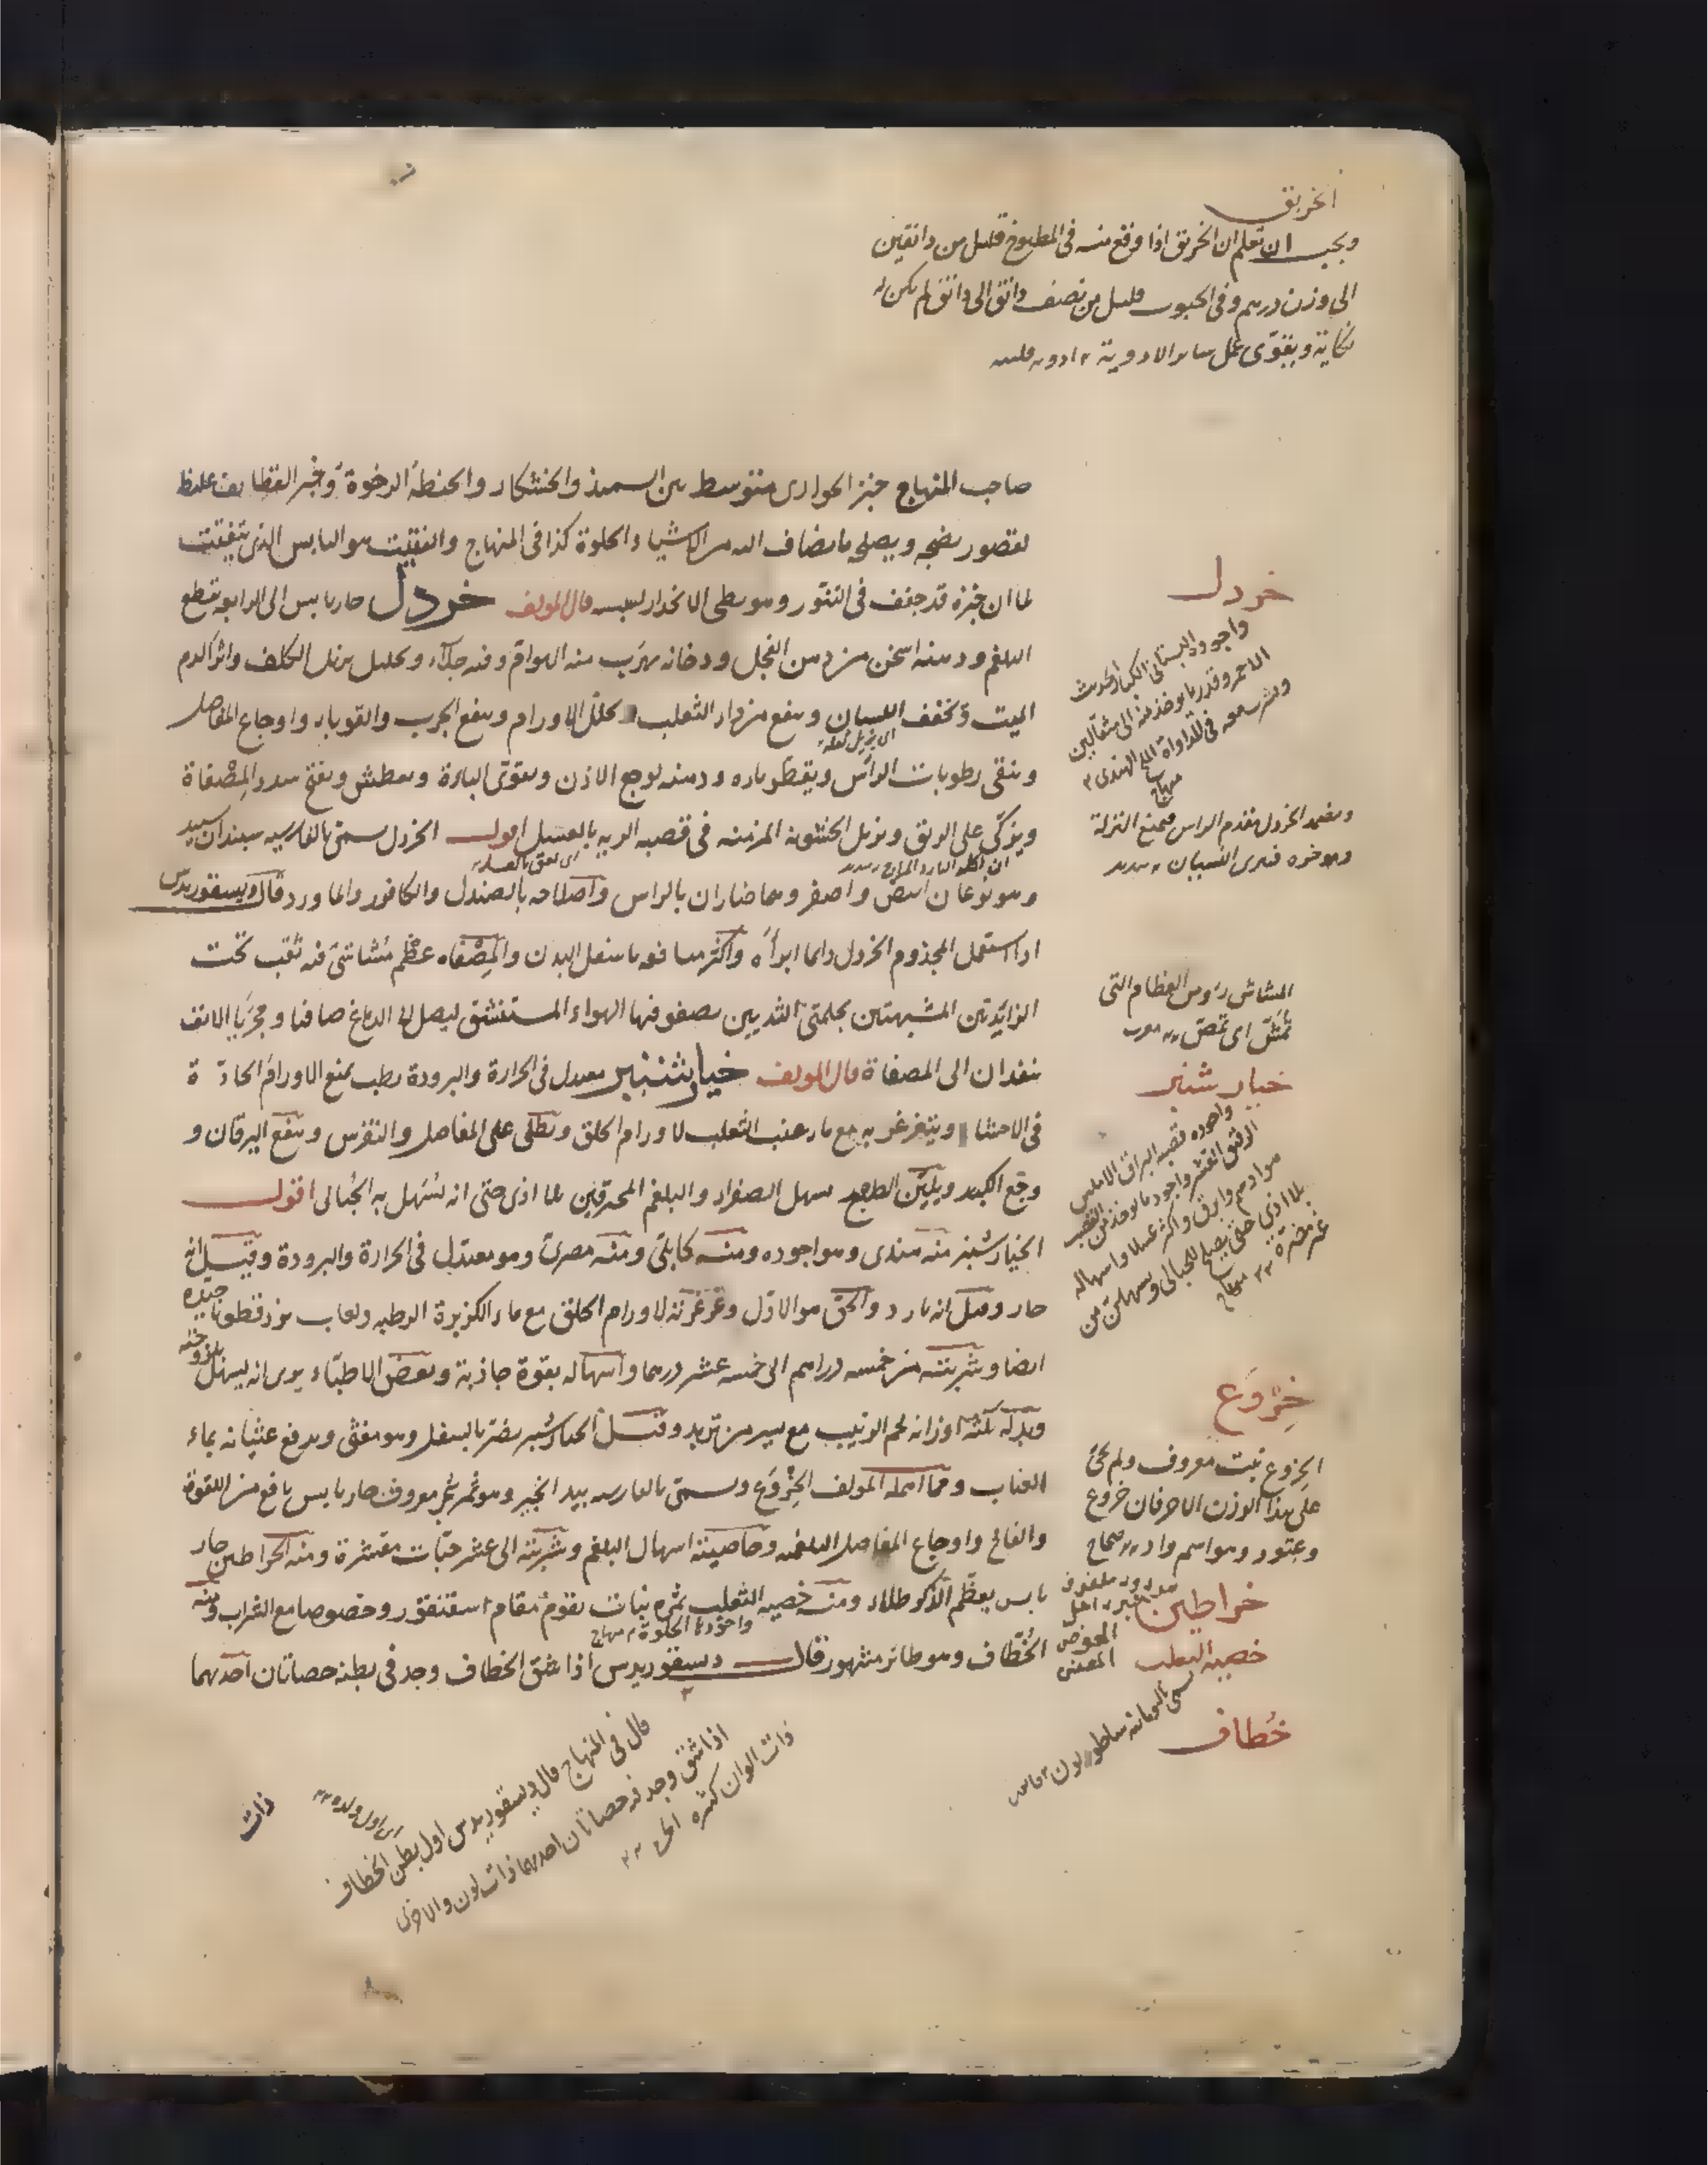 الخربق
ويجب ان تعلم ان الخربق اذا وقع منه فى المطبوخ قليل من دانقين
الى وزن درهم وفى الحبوب قليل من نصف دانق الى دانق لم يكن له
نكاية ويقوى عمل ساير الادوية
صاحب المنهاج خبز الحوارى متوسط بين السميذ والخشكار والحنطة الرخوة وخبز القطايف غليظ
لقصور نضجه ويصلحه ما يضاف اليه من الاشياء الحلوة كذا فى المنهاج والفتيت هو اليابس الذى يتفتت
لما ان خبزه قد جفف فى التنور وهو بطى الانحدار ليبسه قال المولف خردل حار يابس الى الرابعة يقطع
البلغم ودهنه اسخن من دهن الفجل ودخانه يهرب منه الهوام وفيه جلاء وتحليل يزيل الكلف واثر الدم
الميت ويخفف اللسان وينفع من داء الثعلب ويحلل الاورام وينفع الجرب والقوباء واوجاع المفاصل
اى يزيل ثقله
وينقى رطوبات الراس ويقطر ماءه ودهنه لوجع الاذن ويقوى الباءة ويعطش ويفتح سدد المصفاة
ويزكى على الريق ويزيل الخشونة المزمنة فى قصبة الرية بالعسل اقول الخردل يسمى بالفارسية سبندان سپيد
وهو نوعان ابيض واصفر وهما ضاران بالراس واصلاحه بالصندل والكافور والماورد قال ديسقوريدس
اذا استعمل المجذوم الخردل دايما ابرأه واكثر منافعه ما ينقل البدن والمصفاه عظم مشاشى فيه ثقب تحت
الزايدتين المشبهتين بحلمتى الثديين يصفو فيها الهواء المستنشق ليصل الى الدماغ صافيا ومجريا الانف
ينفذان الى المصفاة قال المولف خيار شنبر معتدل فى الحرارة والبرودة رطب يمنع الاورام الحادة
فى الاحشاء ويتغرغر به مع ماء عنب الثعلب لاورام الحلق ويطلى على المفاصل والنقرس وينفع اليرقان و
وجع الكبد ويلين الطبع يسهل الصفراء والبلغم المحرقين بلا اذى حتى انه يسهل به الحبالى اقول
الخيار شنبر منه هندى وهو اجوده ومنه كابلى ومنه مصرى وهو معتدل فى الحرارة والبرودة وقيل انه
حار وقيل انه بارد والحق هو الاول وغرغرته لاورام الحلق مع ماء الكزبرة الرطبه ولعاب بزر قطونا جيده
ايضا وشربته من خمسه دراهم الى خمسه عشر درهما واسهاله بقوة جاذبة وبعض الاطباء يرى انه يسهل بلزوجته
وبدله ثلثة اوزانه لحم الزبيب مع يسير من تربد وقيل الخيار شنبر يضر بالسفل وهو مغثى ويدفع غثيانه بماء
العناب ومما اهمله المولف الخروع ويسمى بالفارسيه بيد انجير وهو ثمر شجر معروف حار يابس نافع من اللقوة
والفالج واوجاع المفاصل البلغميه وخاصيته اسهال البلغم وشربته الى عشر حبات مقشرة ومنه الخراطين حار
يابس يعظم الذكر طلاء ومنه خصيه الثعلب ثمره نبات يقوم مقام اسقنقور وخصوصا مع الشراب ومنه
واجودها الحلوة منهاج
الخطاف وهو طائر مشهور قال ديسقوريدس اذا شق الخطاف وجد فى بطنه حصاتان احدهما
خردل
واجوده البستانى الكبار الحديث
الاحمر وقدر ما يوخذ منه الى مثقالين
منهاج
ويضمد الخردل مقدم الراس فيمنع النزلة
المشاش رؤس العظام التى
تمش اى تمص
خيار شنبر
واجوده قصبه البراق الاملس
الرقيق القشر واجود ما يوخذ من القصب
بلا اذى حتى يصلح للحبالى ويسهلهن من
غير مضرة منهاج
خروع
الخروع نبت معروف ولم يجئ
على هذا الوزن الا حرفان خروع
وعتود وهو اسم واد صحاح
خراطين
خصيه الثعلب
خطاف
قال فى المنهاج قال ديسقوريدس اول بطن الخطاف
اى اول ولده
اذا شق وجد فيه حصاتان احديهما ذات لون والاخرى
ذات الوان كثيره
ذات